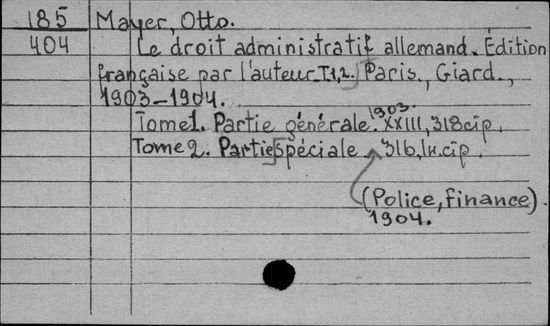 185 Mayer, Otto.
404 Le droit administratif allemand. Édition
française par l'auteur. T.1,2. Paris., Giard.,
1903-1904.
Tome 1. Partie générale. 1903. XXIII, 318 с į р.
Tome 2. Partie spéciale 316, In. с į р.
(Police, finance).
1904.